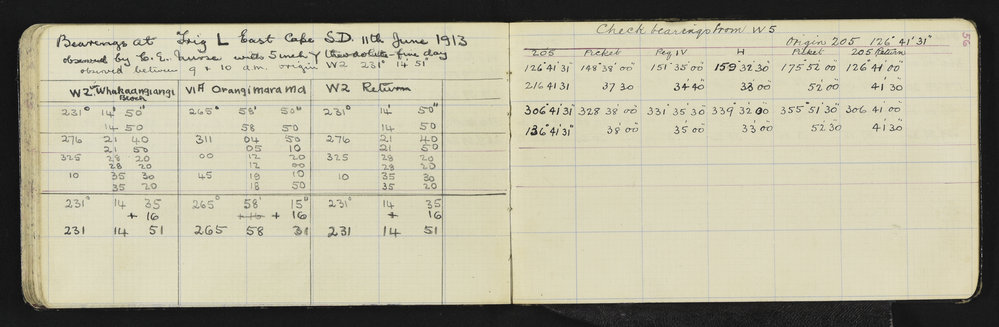 Bearings at Trig L East Cape S.D. 11th June 1913
observed by C. E. Nurse with 5 inch Y theodolite - fine day
observed between 9 & 10 a.m. origin W2 231° 14' 51"
W2 Whakaangiangi Block VIA Orangimarama W2 Return
231° 14' 50" 265° 58' 50" 231° 14' 50"
14 50 58 50 14 50
276 21 40 311 04 50 276 21 40
21 50 05 10 21 50
325 28 20 00 12 20 325 28 20
28 20 12 00 28 20
10 35 30 45 19 10 10 35 30
35 20 18 50 35 20
231° 14 35 265° 58' 15" 231° 14 35
+ 16 + 16 + 16 + 16
231 14 51 265 58 31 231 14 51
Check bearings from W5
Origin 205 126° 41' 31"
56
205 Picket Peg IV H Picket 205 Return
126° 41' 31 148° 38' 00" 151° 35' 00" 159° 32' 30" 175° 52' 00" 126° 41' 00"
216 41 31 37 30 34' 40" 33' 00" 52' 00" 41' 30"
306° 41' 31" 328 38 00 331 35 00 339 32 00 355° 51' 30" 306 41 00
136° 41' 31" 38' 00" 35' 00" 33' 00" 52' 30 41' 30"